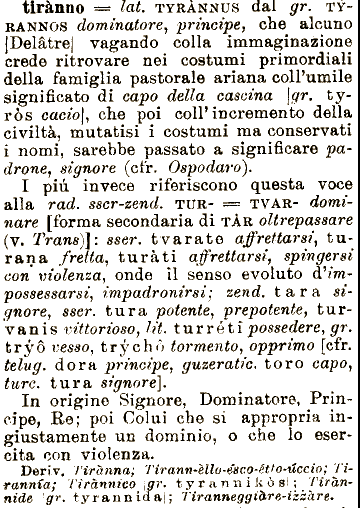 tirànno = lat. TYRÀNNUS dal gr. TÝ-
RANNOS dominatore, principe, che alcuno
|Delâtre| vagando colla immaginazione
crede ritrovare nei costumi primordiali
della famiglia pastorale ariana coll'umile
significato di capo della cascina |gr. ty-
ròs cacio|, che poi coll'incremento della
civiltà, mutatisi i costumi ma conservati
i nomi, sarebbe passato a significare pa-
drone, signore (cfr. Ospodaro).
I piú invece riferiscono questa voce
alla rad. sscr-zend. TUR- = TVAR- domi-
nare [forma secondaria di TÀR oltrepassare
(v. Trans)]: sscr. tvarate affrettarsi, tu-
raṇa fretta, turàti affrettarsi, spingersi
con violenza, onde il senso evoluto d'im-
possessarsi, impadronirsi; zend. tara si-
gnore, sscr. tura potente, prepotente, tur-
vanis vittorioso, lit. turréti possedere, gr.
trýô vesso, trýchô tormento, opprimo [cfr.
telug. dora principe, guzeratic. toro capo,
turc. tura signore].
In origine Signore, Dominatore, Prin-
cipe, Re; poi Colui che si appropria in-
giustamente un dominio, o che lo eser-
cita con violenza.
Deriv. Tirànna; Tirann-èllo-ésco-étto-úccio; Ti-
rannía; Tirànnico |gr. tyrannikòs|; Tiràn-
nide |gr. tyrannida|; Tiranneggiàre-izzàre.